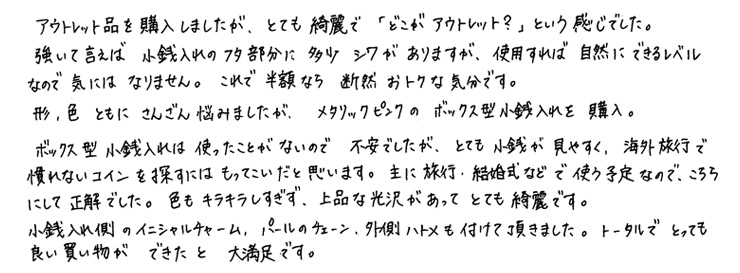 アウトレット品を購入しましたが、とても綺麗で「どこがアウトレット？」という感じでした。
強いて言えば 小銭入れのフタ部分に多少シワがありますが、使用すれば自然にできるレベル
なので気にはなりません。これで半額なら断然おトクな気分です。
形，色ともにさんざん悩みましたが、メタリックピンクのボックス型小銭入れを購入。
ボックス型小銭入れは使ったことがないので不安でしたが、とても小銭が見やすく，海外旅行で
慣れないコインを探すにはもってこいだと思います。主に旅行・結婚式などで使う予定なので、こちら
にして正解でした。色もキラキラしすぎず、上品な光沢があってとても綺麗です。
小銭入れ側のイニシャルチャーム，パールのチェーン，外側ハトメも付けて頂きました。トータルでとっても
良い買い物ができたと大満足です。